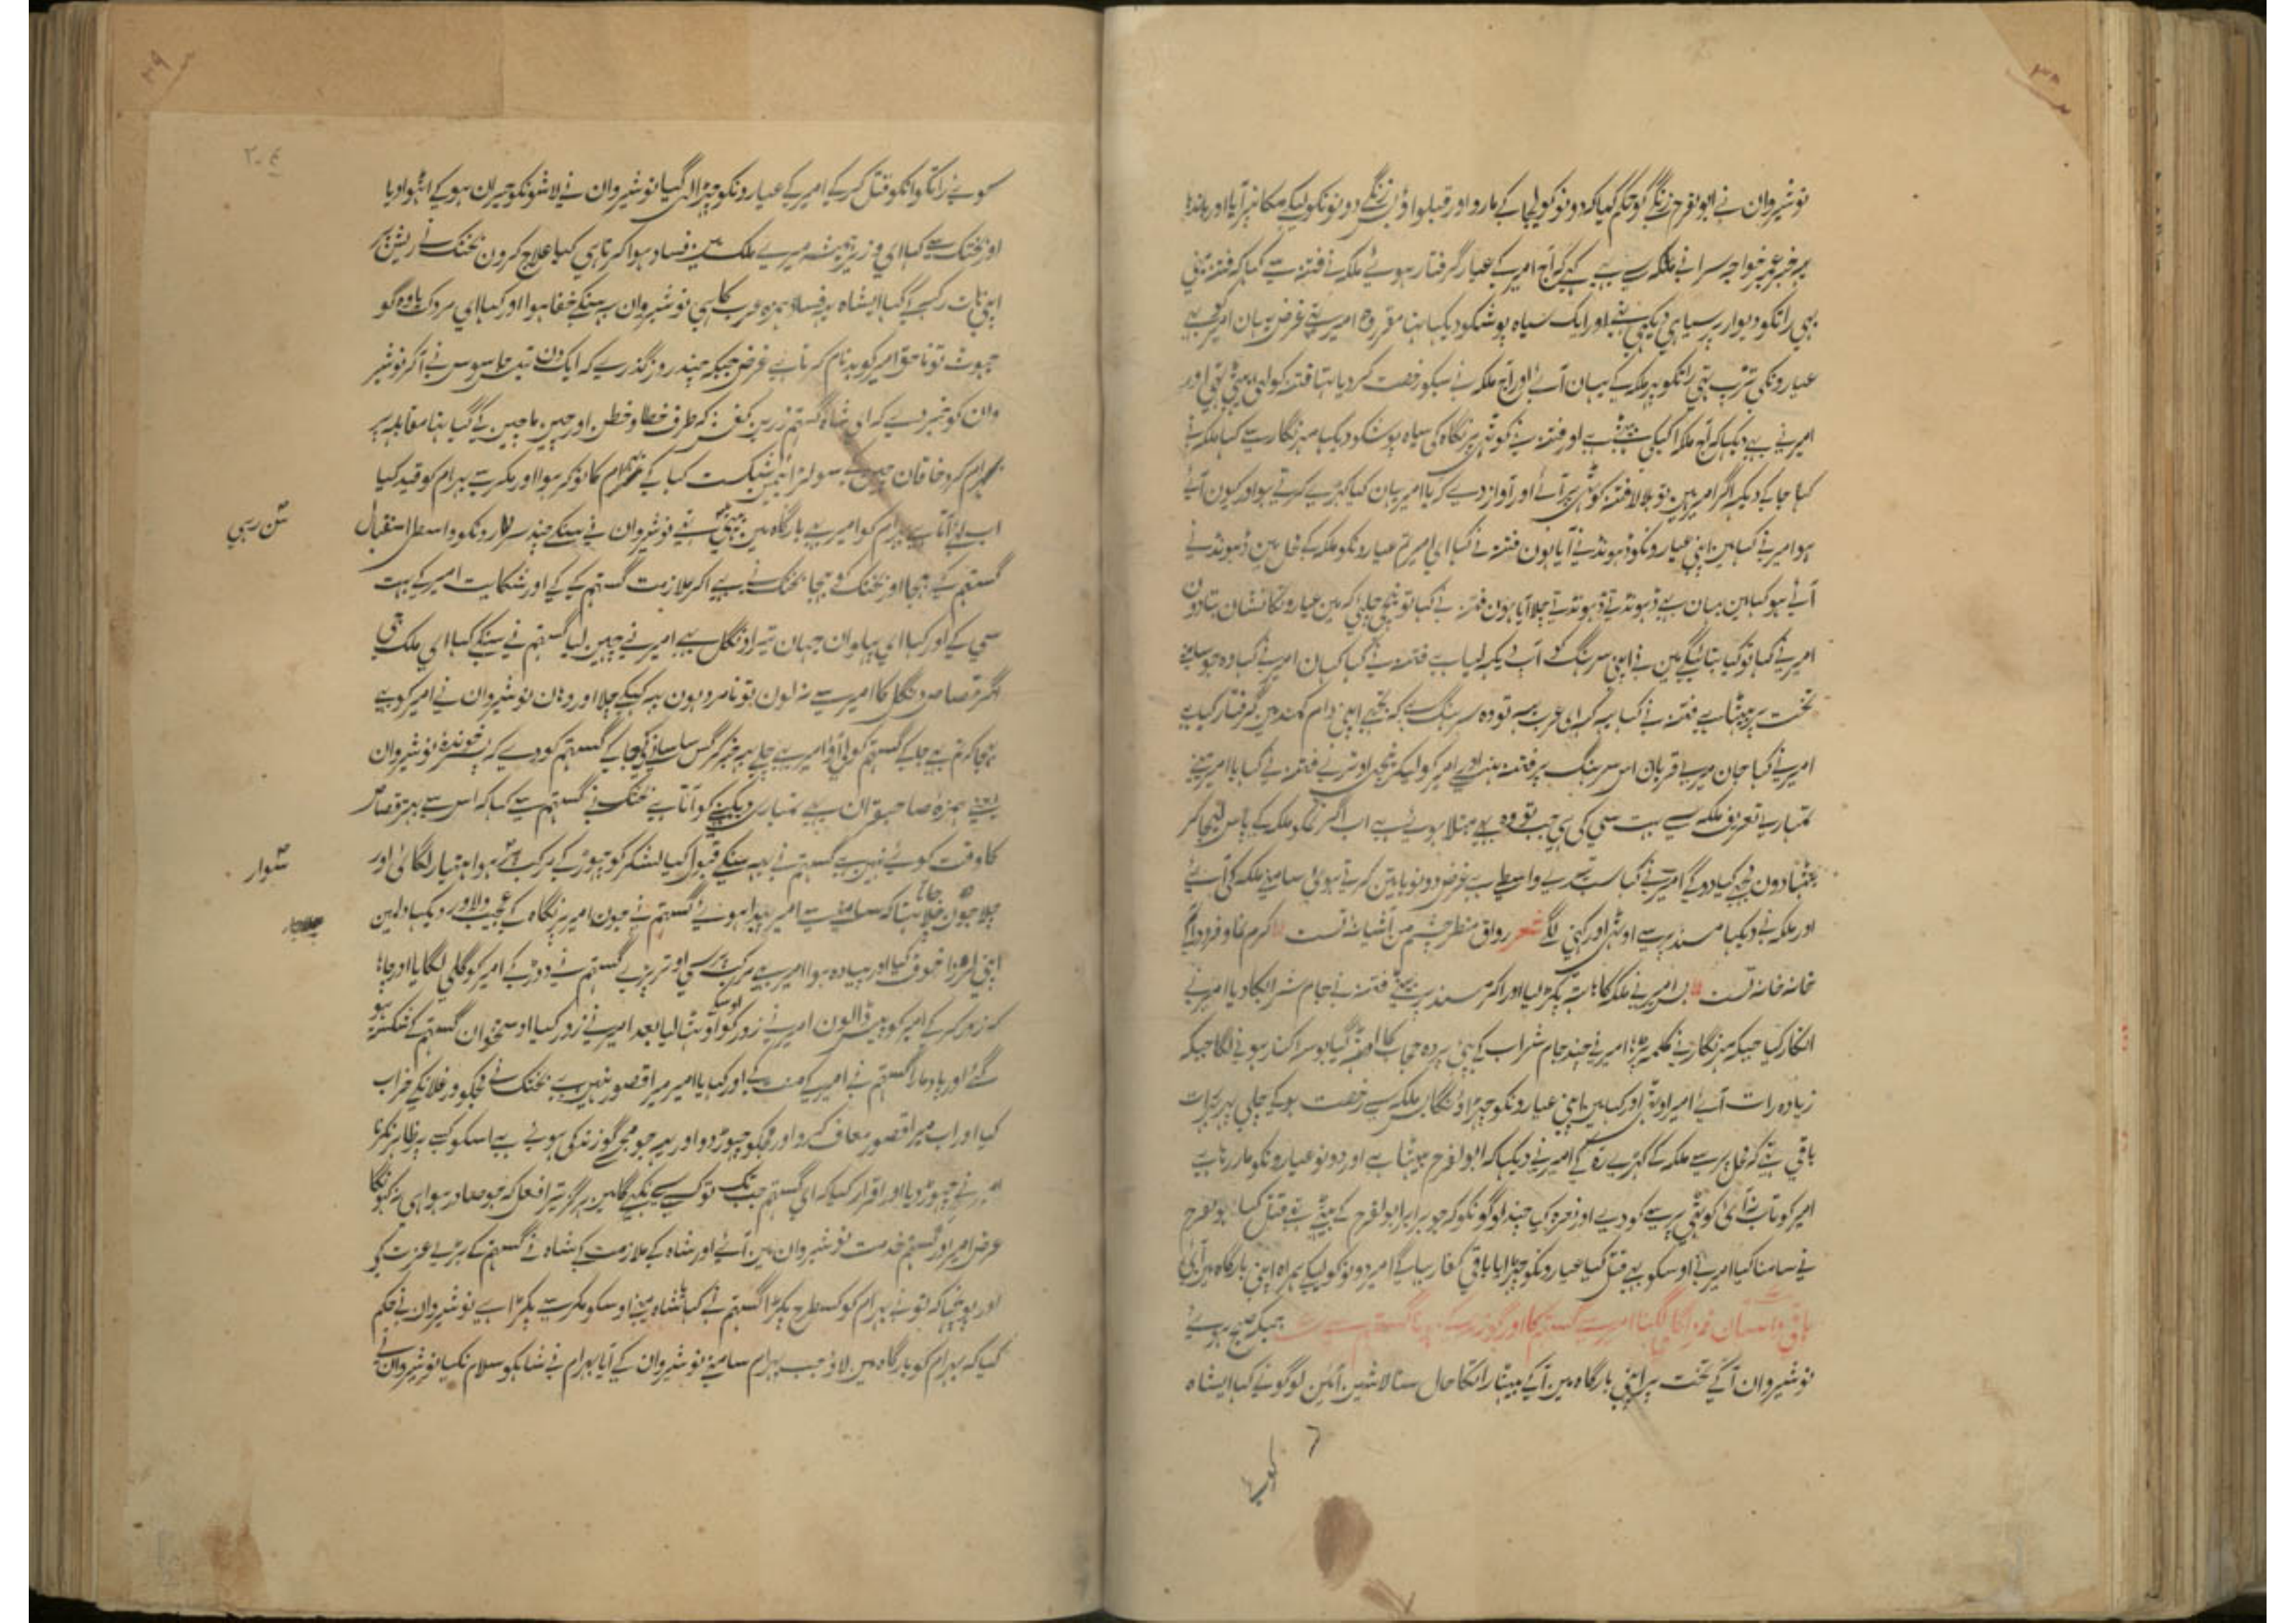 نوشیروان نے ابوالفرح زنگے کو حکم کیا کہ دونو کو لیجا کے مارو اور قبلواؤ پس زنگے دونونکو لیکے مکانپر آیا اور باندھا
یہ خبر عنبر خواجہ سرا نے ملکہ سے کہے کہ آج امیر کے عیار گرفتار ہوئے ملکہ نے فتنہ سے کہا کہ فتنہ تینی
بہی راتکو دیوار پر سیاہی دیکہی تہی اور ایک سیاہ پوشکو دیکہا تہا مقرر وہ امیر تہے غرض یہان امیر کو بہے
عیارونکی تڑپ تہی راتکو پہر ملکہ کے یہان آئے اور آج ملکہ نے سبکو رخصت کر دیا تہا فتنہ کو لے بیٹہی تہی اور
امیر نے بہے دیکہا کہ آج ملکہ اکیلی بیٹہی ہے اور فتنہ نے کوٹہی پر نگاہ کی سیاہ پوشکو دیکہا مہرنگار سے کہا ملکہ نے
کہا جا کے دیکہہ اگر امیر ہین تو بلا لا فتنہ کوٹہی پر آئے اور آواز دے کر یا امیر یہان کیا کہڑے کرتے ہو اور کیون آئے
ہو امیر نے کہا مین اپنی عیارونکو ڈہونڈنے آیا ہون فتنہ نے کہا ای امیر تم عیارونکو ملکہ کے محل مین ڈہونڈنے
آئے ہو کہا مین یہان بہے ڈہونڈتے ڈہونڈتے چلا آیا ہون فتنہ نے کہا تو نیچے چلیے کہ مین عیارونکا نشان بتا دون
امیر نے کہا تو کیا بتائیگے مین نے اپنی سرہنگ کو آپ دیکہہ لیا ہے فتنہ نے کہا کہان امیر نے کہا وہ جو سامنے
تخت پر بیٹہا ہے فتنہ نے کہا یہ کہ ای عرب یہ تو وہ سرہنگ ہے کہ تجہے اپنی دام کمند مین گرفتار کیا ہے
امیر نے کہا جان میرے قربان اس سرہنگ پر فتنہ ہنسے اور امیر کو لیکر نیچے اوترے فتنہ نے کہا یا امیر مینے
تمہارے تعریف ملکہ سے بہت سے کی ہے جب تو وہ بہے مبتلا ہوئے ہے اب اگر تمکو ملکہ کے پاس لیجا کر
بٹہا دون مجہے کیا دوگے امیر نے کہا سب تیرے واسطے ہے غرض دونو باتین کرتے ہوئے سامنے ملکہ کی آئے
اور ملکہ نے دیکہا مسند پر سے اوٹہی اور کہنی لگے شعر رواق منظر چشم من آشیانہ تست کرم نما و فرود آ کہ
خانہ خانہ تست پس امیر نے ملکہ کا ہاتہہ پکڑ لیا اور آکر مسند پر بیٹہے فتنہ نے جام شراب کا دیا امیر نے
انکار کیا جبکہ مہرنگار نے کلمہ پڑہا امیر نے چند جام شراب کے پئے پردہ حجاب کا اوٹہہ گیا بوس و کنار ہونے لگا جبکہ
زیادہ رات آئے امیر اوٹہے اور کہا مین اپنی عیارونکو چہڑاؤنگا پس ملکہ سے رخصت ہو کے چلے پہر رات
باقی تہے کہ محل پر سے ملکہ کے کہڑے رہ کے امیر نے دیکہا کہ ابوالفرح بیٹہا ہے اور دونو عیارونکو مار رہا ہے
امیر کو تاب نہ آئی کوٹہی پر سے کودے اور نعرہ کیا چند لوگونکو کہ جو برابر ابوالفرح کے بیٹہے تہے قتل کیا ابوالفرح
نے سامنا کیا امیر نے اوسکو بہے قتل کیا عیارونکو چہڑایا باقی کفار بہاگے امیر دونو کو لیکے ہمراہ اپنی بارگاہ مین آئے
جبکہ صبح ہوئے
نوشیروان آ کے تخت پر اپنی بارگاہ مین آ کے بیٹہا راتکا حال سنا لاشین آئین لوگونے کہا ایشاہ
کوئے راتکو انکو قتل کر کے امیر کے عیارونکو چہڑا لے گیا نوشیروان نے لاشونکو حیران ہو کے اٹہوا دیا
اور بختک سے کہا ای وزیر ہمیشہ میرے ملک مین فساد ہوا کرتا ہی کیا علاج کرون بختک نے ریش پر
اپنی ہات رکہے کہا ایشاہ یہ فساد حمزہ عرب کا ہی نوشیروان یہ سنکے خفا ہوا اور کہا ای مردک یاوہ گو
جہوٹ تو ناحق امیر کو بدنام کرتا ہے غرض جبکہ چند روز گذرے کہ ایک دن جاسوس نے آکر نوشیر
وان کو خبر دے کہ ای شاہ گستہم زرین کفش کہ طرف خطا و خطن اور چین ماچین کے گیا تہا مقابلہ پر
بہرام گرد خاقان چین سے سو لڑائیمین شکست کہا کے بہرام کا نوکر ہوا اور مکر سے بہرام کو قید کیا
اب لے آتا ہے بہرام کو امیر بہے بارگاہ مین بیٹہے تہے نوشیروان نے سنکے چند سردارونکو واسطے استقبال
سن رہی
گستہم کے بہیجا اور بختک کو بہیجا بختک نے بہے آکر ملازمت گستہم کے کے اور شکایت امیر کے بہت
سی کے اور کہا ای پہلوان جہان تیرا دنگل بہے امیر نے چہین لیا گستہم نے سنکے کہا ای ملک جی
اگر قصاص دنگل کا امیر سے نہ لون تو نامرد ہون یہ کہیکے چلا اور وہان نوشیروان نے امیر کو بہے
بہیجا کہ تم بہے جا کے گستہم کو لے آؤ امیر بہے چلے یہ خبر کرگس ساسانی جا کے گستہم کو دے کہ پسر خوندہ نوشیروان
یعنے حمزہ صاحبقران بہے تمہاری دیکہنے کو آتا ہے بختک نے گستہم سے کہا کہ اس سے بہتر قصاص
کا وقت کوئے نہین ہے گستہم نے یہ سنکے قبول کیا لشکر کو چہوڑ کے مرکب پر ہوا ہتیار لگائی اور
سوار
چلا جاتا تہا کہ سامنے سے امیر پیدا ہوئے گستہم نے جون امیر پر نگاہ کے عجیب دلاور دیکہا دلمین
اپنی خوف کیا اور پیادہ ہوا امیر بہے مرکب پر سے اوتر پڑے گستہم نے دوڑ کے امیر کو گلی لگایا اور چاہا
کہ زور کر کے امیر کو پیس ڈالون امیر نے زور کو اوسکے اوٹہا لیا بعد امیر نے زور کیا استخوان گستہم کے شکستہ ہو
گئے اور باد مارا گستہم نے امیر کے منت کے اور کہا یا امیر میرا قصور نہین ہے بختک نے مجکو ورغلانکے خراب
کیا اور اب میرا قصور معاف کرو اور مجکو چہوڑ دو اور یہ جو مجہے گوزندکی ہوئے ہے اسکو کسے پر ظاہر نکرنا
امیر نے چہوڑ دیا اور اقرار کیا کہ ای گستہم جب تک تو کسے سے نکہیگا مین ہرگز تیرا فعل کہ جو صادر ہوا ہی نہ کہونگا
غرض امیر اور گستہم خدمت نوشیروان مین آئے اور شاہ کے ملازمت کے شاہ نے گستہم کے بڑے عزت کے
اور پوچہا کہ تونے بہرام کو کسطرح پکڑا گستہم نے کہا شاہ مینے اوسکو مکر سے پکڑا ہے نوشیروان نے حکم
کیا کہ بہرام کو بارگاہ مین لاؤ جب بہرام سامنے نوشیروان کے آیا بہرام نے شاہکو سلام نکیا نوشیروان نے